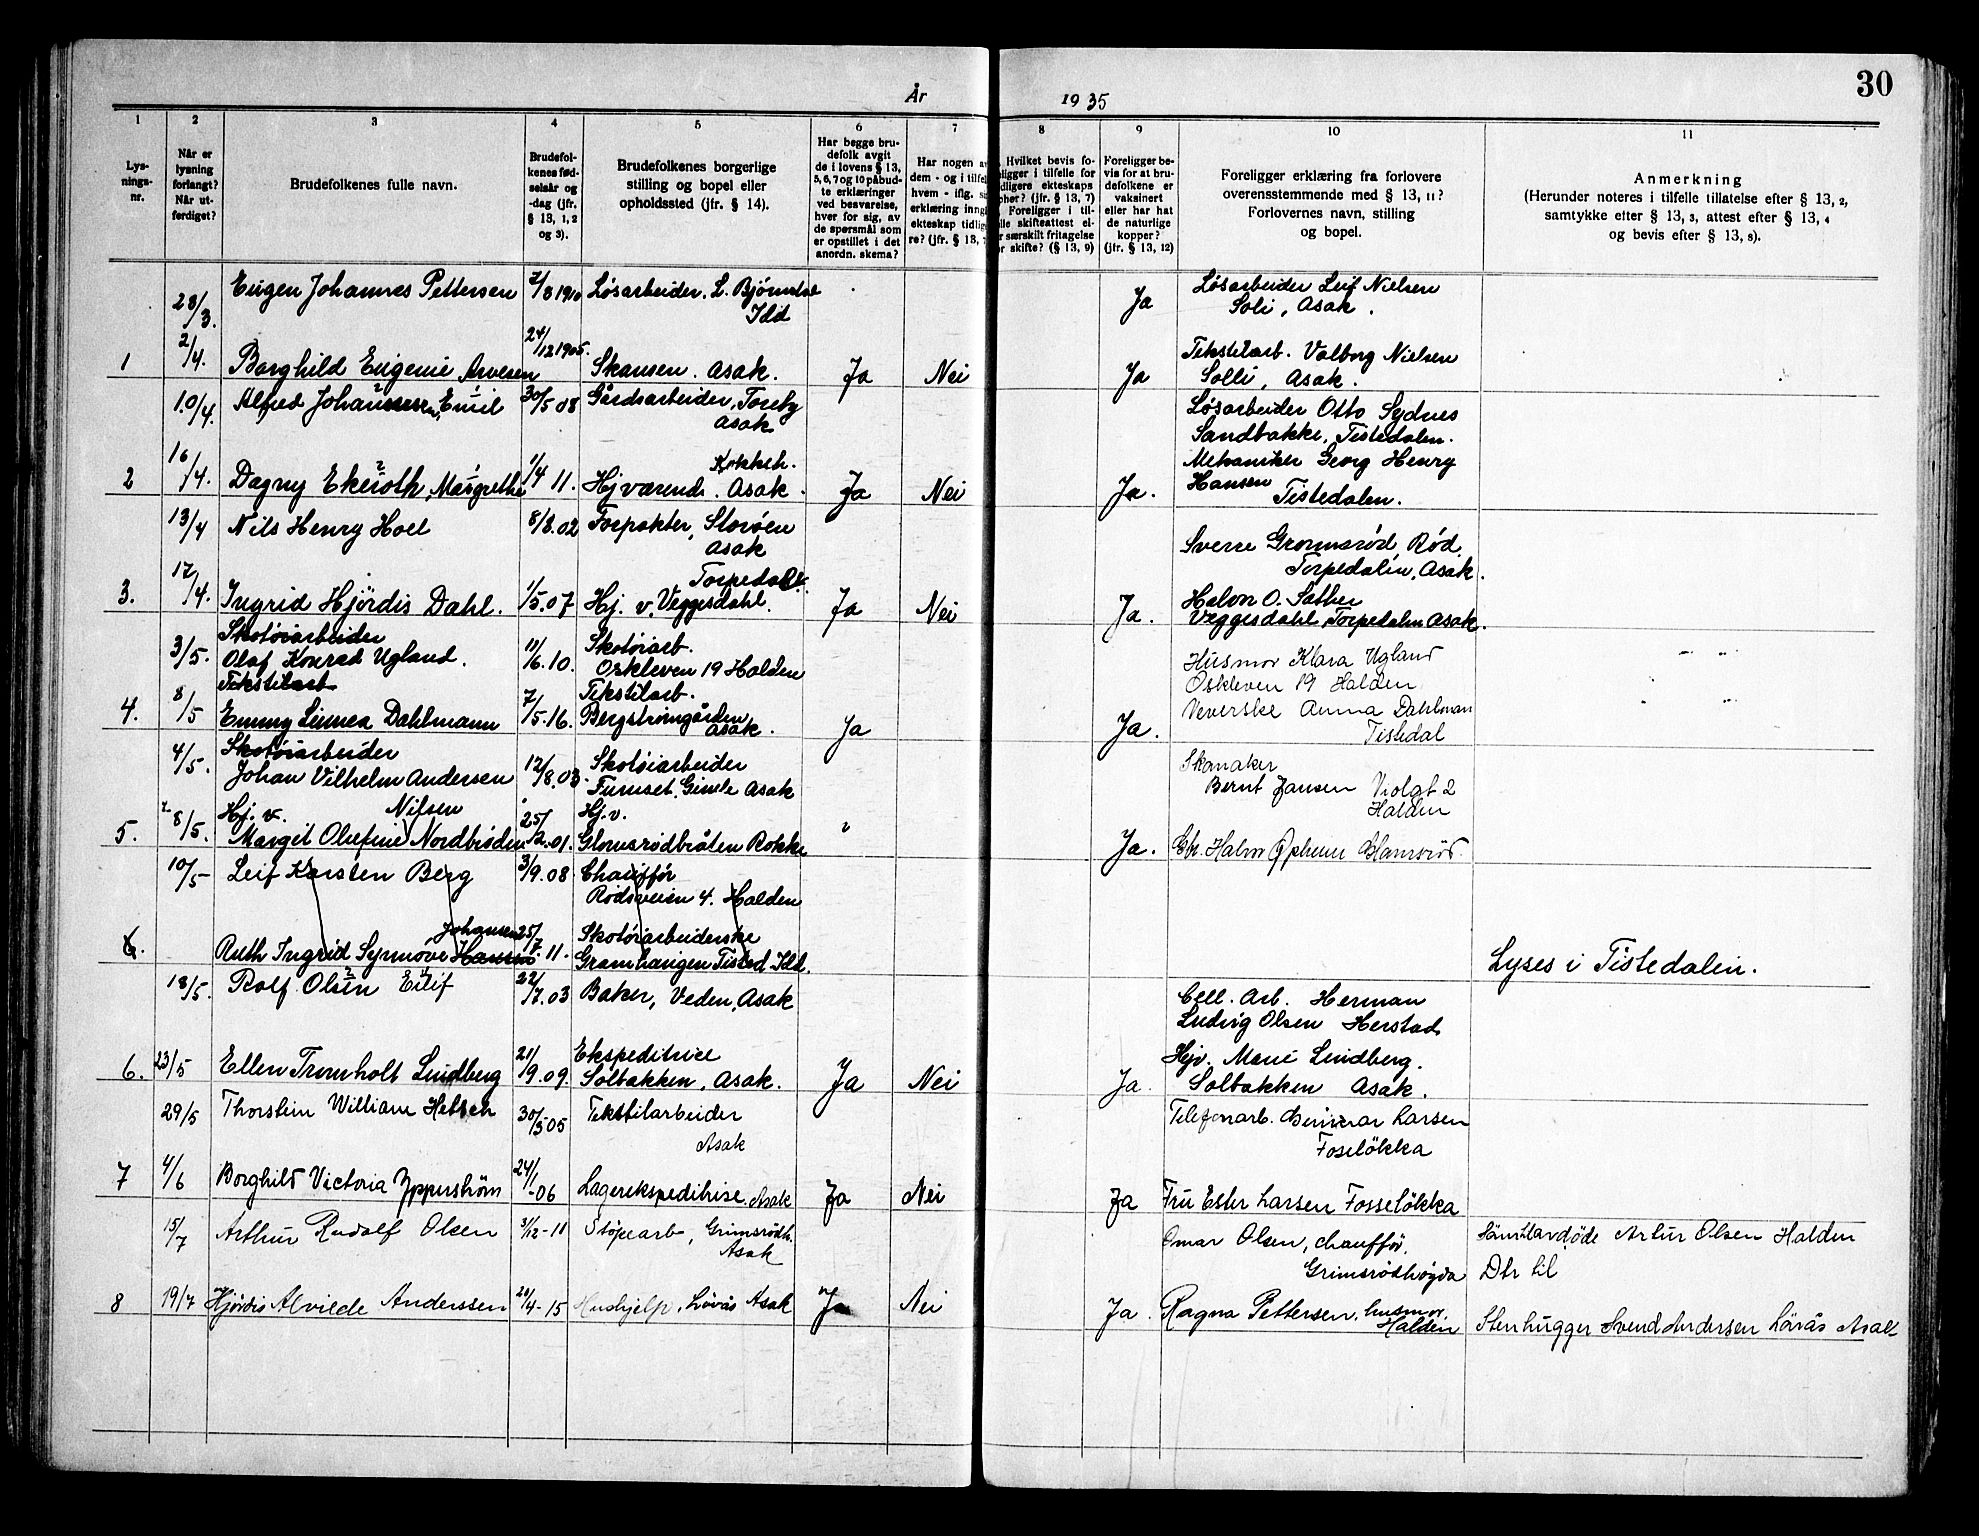 30
År 1935
1 2 3 4 5 6 7 8 9 10 11
Lys-
nings-
nr.
Når er
lysning
forlangt?
Når ut-
ferdiget?
Brudefolkenes fulle navn.
Brudefol-
kenes fød-
selsår og
-dag (jfr.
§ 13, 1, 2
og 3).
Brudefolkenes borgerlige
stilling og bopel eller
opholdssted (jfr. § 14).
Har begge bru-
defolk avgit
de i lovens § 13,
5, 6, 7 og 10 påbud-
te erklæringer
ved besvarelse,
hver for sig, av
de spørsmål som
er opstillet i det
anordn. skema?
Har nogen av
dem - og i tilfel
hvem - iflg. si
erklæring inngå
ekteskap tidlig
re? (jfr. § 13, 7
Hvilket bevis fo-
ligger i tilfelle for
dligere ekteskaps
phør? (jfr. § 13, 7)
Foreligger i til-
lle skifteattest el-
r særskilt fritagelse
or skifte? (§ 13, 9)
Foreligger be-
vis for at bru-
defolkene er
vaksinert
eller har hat
de naturlige
kopper?
(jfr. § 13, 12)
Foreligger erklæring fra forlovere
overensstemmende med § 13, 11?
Forlovernes navn, stilling
og bopel.
Anmerkning
(Herunder noteres i tilfelle tillatelse efter § 13, 2,
samtykke efter § 13, 3, attest efter § 13, 4
og bevis efter § 13, 8).
28/3. Eugen Johannes Pettersen 7/8 1910 Løsarbeider. L. Bjørnstad
Idd
Ja Løsarbeider Leif Nielsen
Soli, Asak.
2/4. 24/12 1905.
1 Borghild Eugenie Arvesen Skansen. Asak. Ja Nei
Ja Tekstilarb. Valborg Nielsen
Solli, Asak.
10/4. Alfred Johannessen, Emil 30/5 08 Gårdsarbeider, Toreby
Asak
Løsarbeider Otto Sydnes
Sandbakke, Tistedalen.
2 16/4. Dagny Ekeroth, Margrethe 1/4 11. Hjværende. Asak. Ja Nei
Ja. Mekaniker Georg Henry
Hansen
Tistedalen.
13/4 Nils Henry Hoel 8/8.02 Forpakter, Storøen
Asak
Sverre Gromsrød, Rød.
Torpedalen, Asak.
Torpedalen.
3. 17/4. Ingrid Hjørdis Dahl. 1/5.07 Hj. v. Veggesdahl. Ja Nei
Ja. Halvor O. Sæther
Veggesdahl, Torpedalen Asak.
3/5. Skotøiarbeider
Olaf Konrad Ugland. 11/6.10. Skotøiarb.
Oskleven 19 Halden
Husmor Klara Ugland
Oskleven 19 Halden
Tekstilarb
4. 8/5 Emmy Linnea Dahlmann 7/5.16. Tekstilarb.
Bergstrømgården
Asak. Ja
Ja. Veverske Anna Dahlman
Tistedal
4/5. Skotøiarbeider
Johan Vilhelm Andersen 12/8.03. Skotøiarbeider
Furuset. Gimle Asak
Skomaker
Bernt Jansen Violgt 2
Halden
Hj. v. Nilsen
5. 8/5. Margit Olufine Nordbrøden 25/2.01. Hj. v.
Glomsrødbråten Rokke
Ja.
10/5 Leif Karsten Berg 3/9.08 Chauffør
Rødsveien 4. Halden
Johansen
6. Ruth Ingrid Synnøve Hansen 25/7.11. Skotøiarbeiderske
Gramhaugen Tisted Idd.
Lyses i Tistedalen.
18/5. Rolf Olsen Eilif 22/7.03 Baker, Veden, Asak
Cell. Arb. Herman
Ludvig Olsen Herstad
6. 23/5 Ellen Tromholt Lindberg 21/9.09. Ekspeditrice
Solbakken, Asak. Ja Nei
Ja. Hjv. Marie Lindberg.
Solbakken Asak.
29/5 Thorstein William Helsch 30/5-05 Tekstilarbeider
Asak
Telefonarb. Gunnar Larsen
Foseløkka
7 4/6 Borghild Victoria Ypperstrøm 24/1-06 Lagerekspeditrise. Asak Ja Nei
Ja Fru Ester Larsen Fosseløkka
15/7 Arthur Rudolf Olsen 3/12-11 Støpearb, Grimsrødh.
Asak
Omar Olsen, chauffør,
Grimsrødhøgda
Artur Olsen Halden
Dtr til
8 19/7 Hjørdis Alvilde Anderssen 20/4-15 Hushjelp, Løvås Asak Ja Nei
Ja. Ragna Pettersen, husmor
Halden
Stenhugger Svend Andersen Løvås Asak